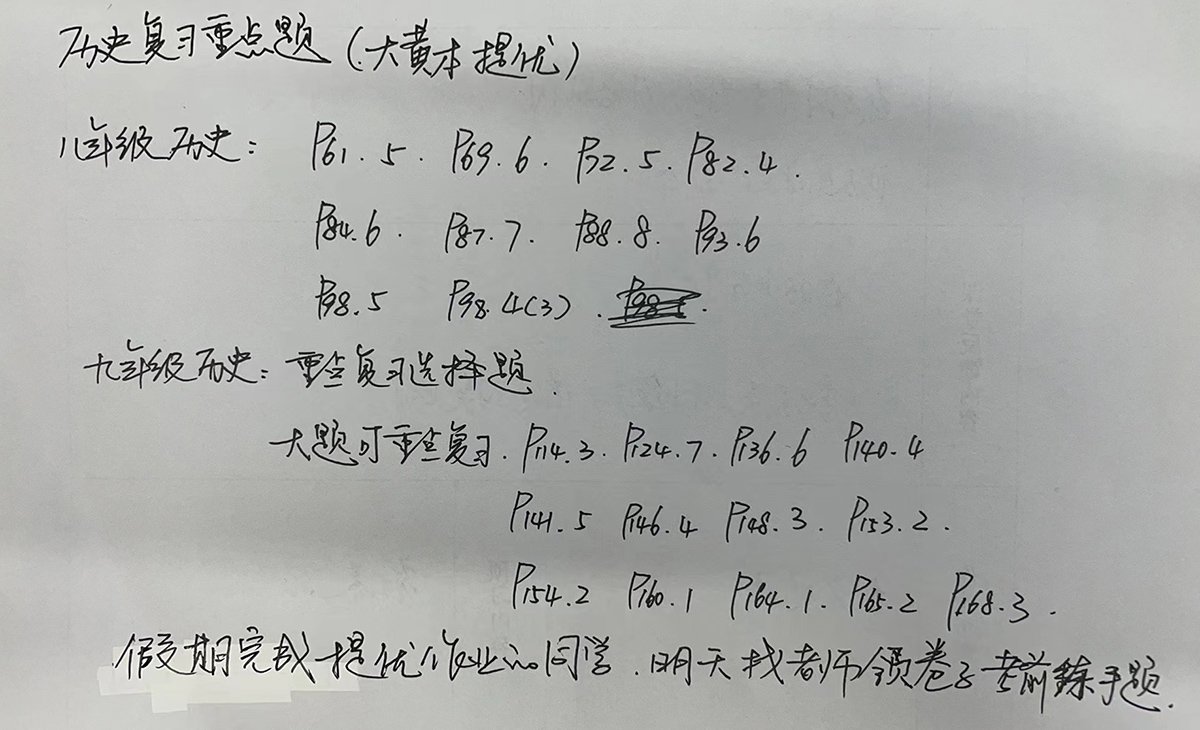 历史复习重点题(大黄本提优)
八年级历史: P61.5. P69.6. P72.5. P82.4.
P84.6. P87.7. P88.8. P93.6
P98.5 P98.4(3).
九年级历史: 重点复习选择题.
大题可重点复习. P114.3. P124.7. P136.6 P140.4
P141.5 P146.4 P148.3. P153.2.
P154.2 P160.1 P164.1. P165.2 P168.3.
假期完成提优作业的同学.明天找老师领卷子考前练手题.